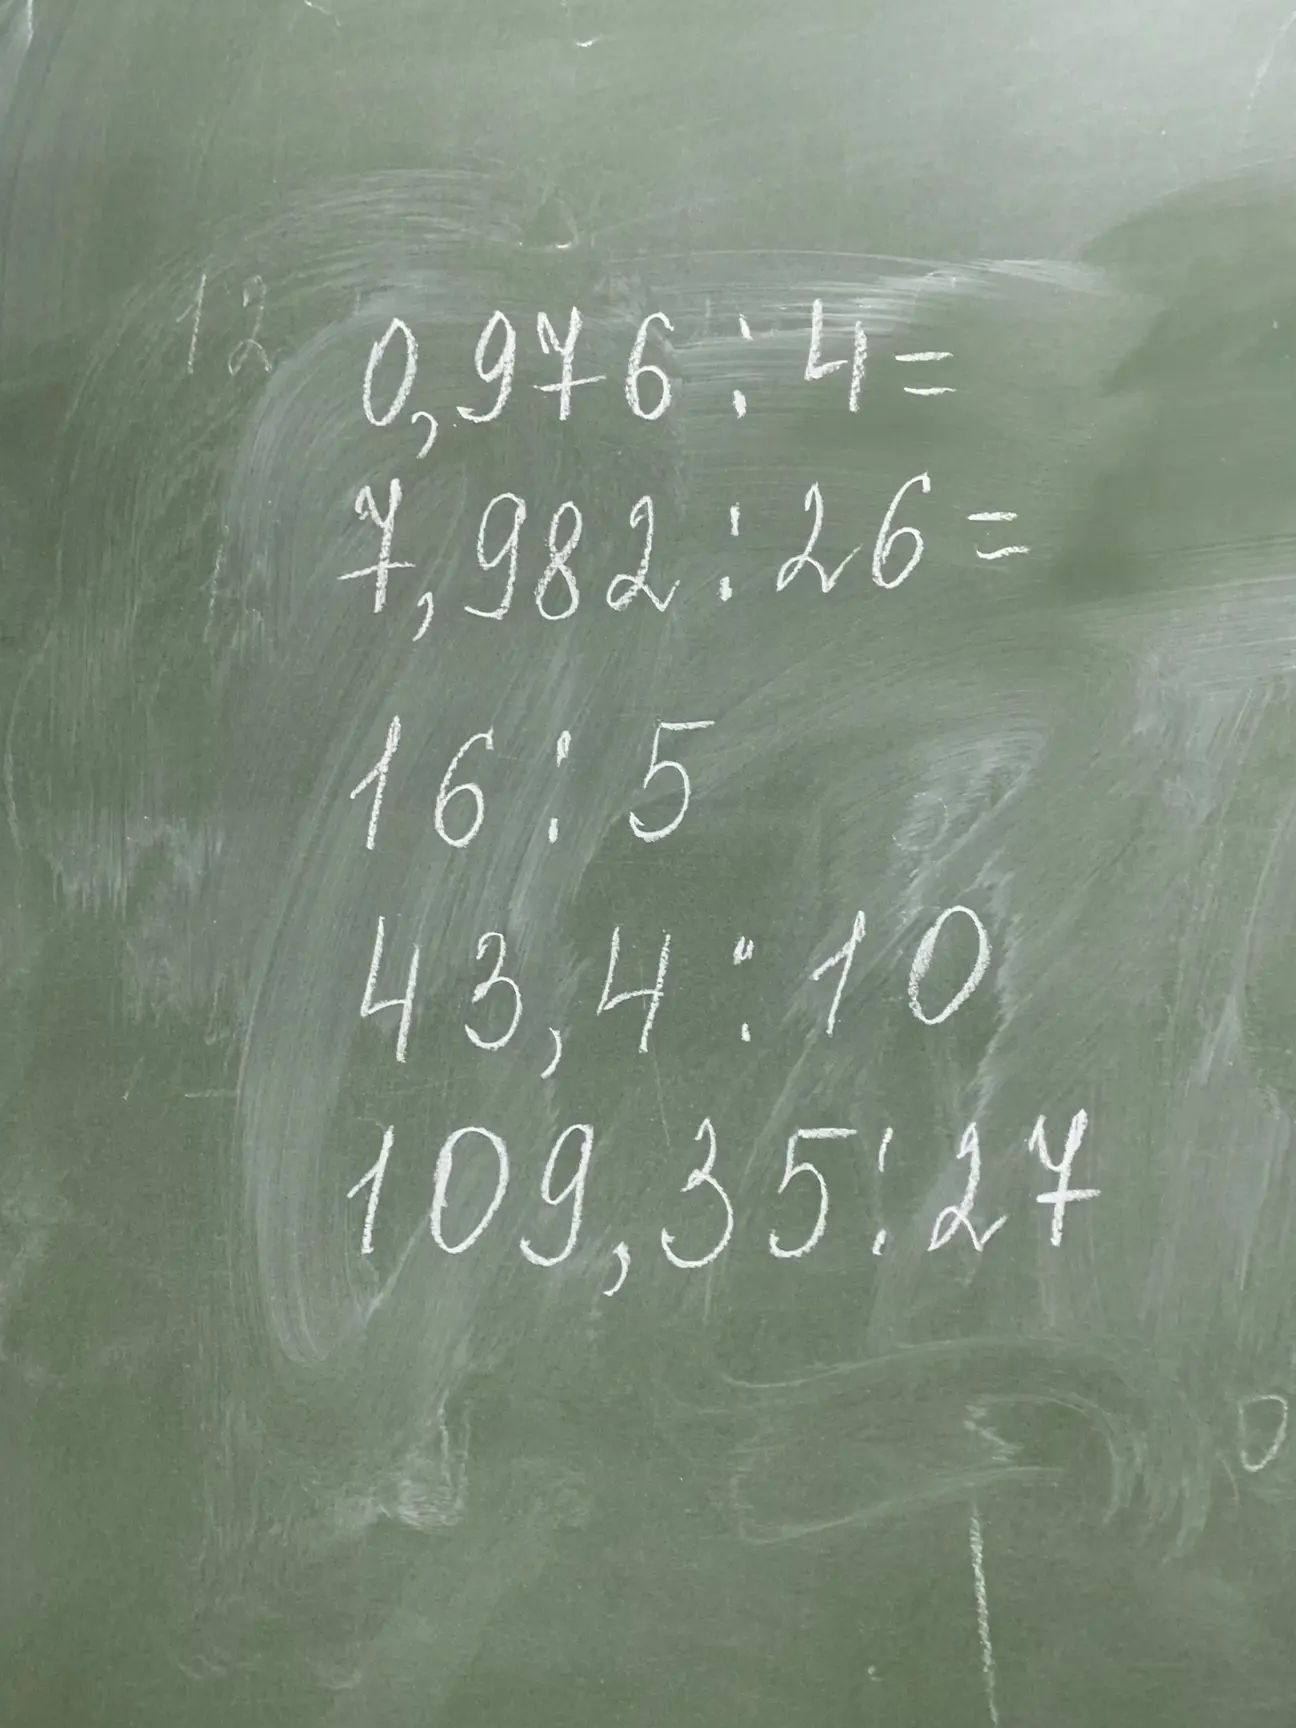 12
0,976:4=
7,982:26=
16:5
43,4:10
109,35:27
0